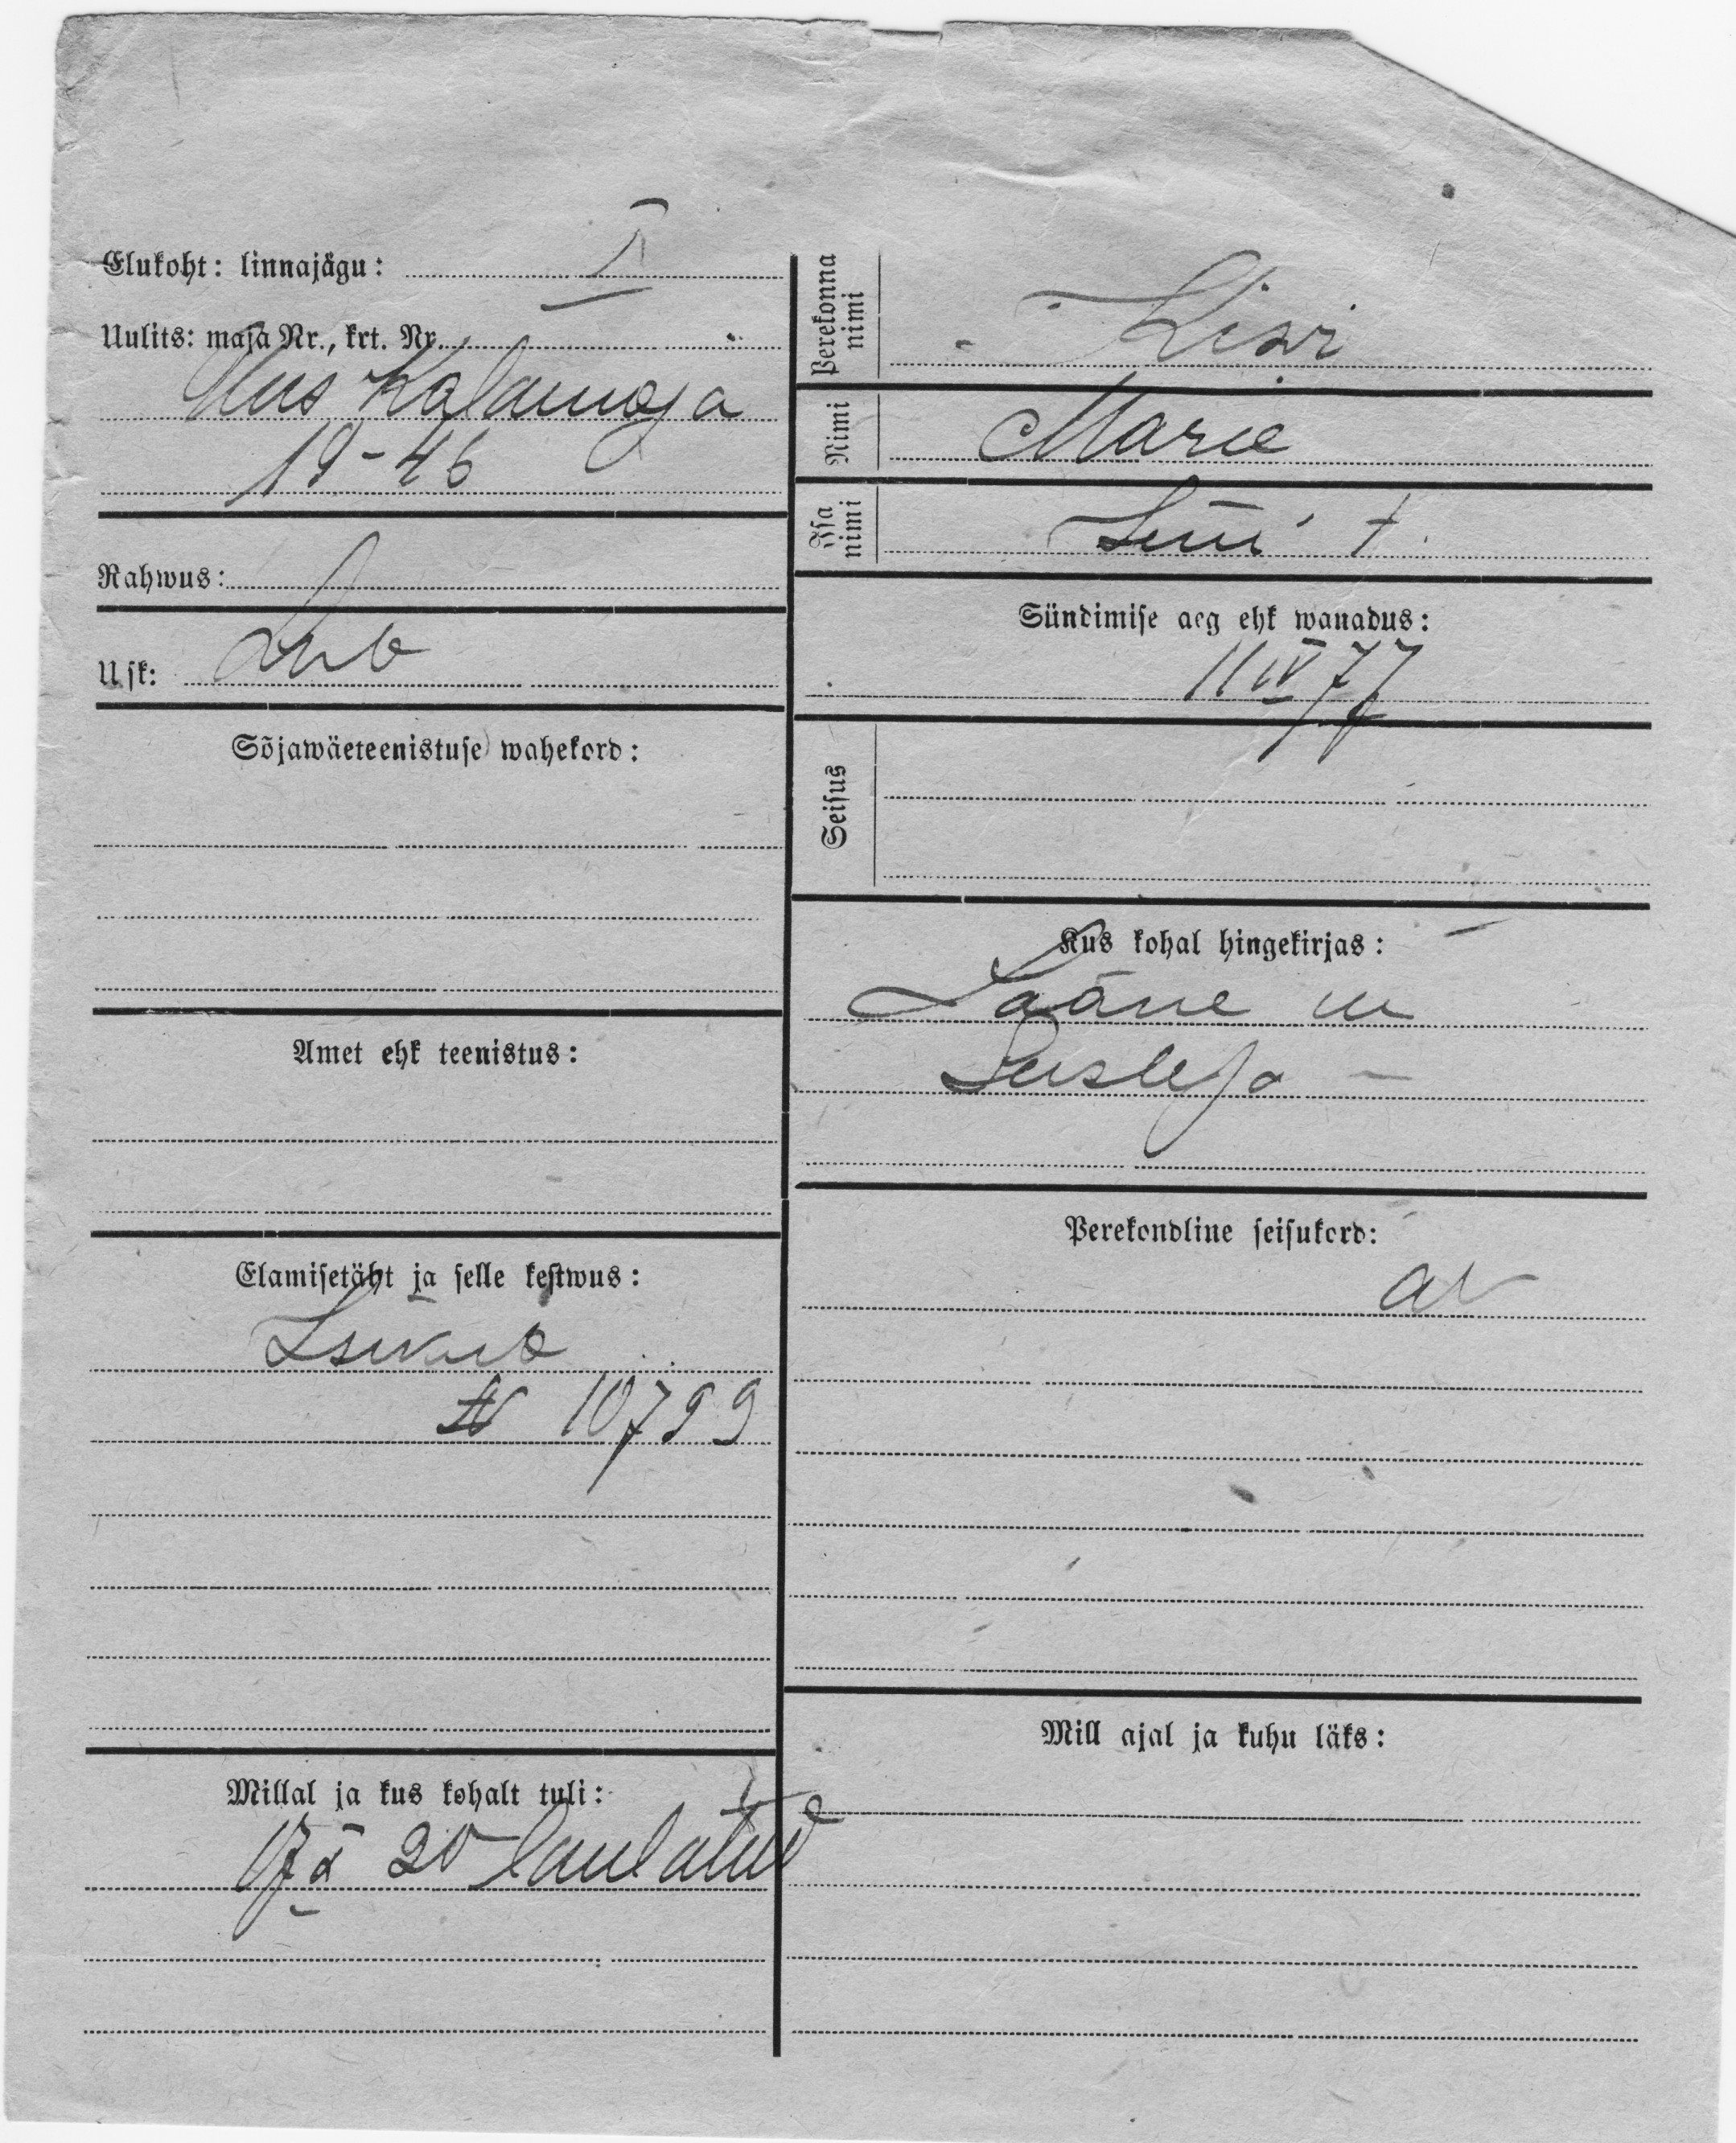 Elukoht: linnajägu: I
Uulits: maja Nr., krt. Nr.
Uus Kalamaja
19-46
Rahwus:
Usk: Lut
Sõjawäeteenistuse wahekord:
Amet ehk teenistus:
Elamisetäht ja selle kestwus:
№ 10799
Millal ja kus kohalt tuli:
17 X 20 laulatud
Perekonna nimi Kiwi
Nimi Marie
Isa nimi Jüri t.
Sündimise aeg ehk wanadus:
11 IV 77
Seisus
Kus kohal hingekirjas:
Lääne m
Perekondline seisukord:
ab
Mill ajal ja kuhu läks: